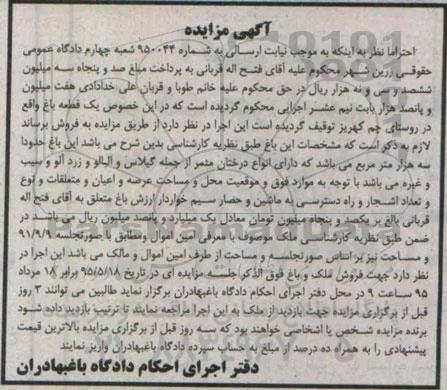 آگهی مزایده
احتراما نظر به اینکه به موجب نیابت ارسالی به شماره ۹۵۰۰۴۴ شعبه چهارم دادگاه عمومی
حقوقی زرین شهر محکوم علیه آقای فتح اله قربانی به پرداخت مبلغ صد و پنجاه سه میلیون
ششصد و سی و نه هزار ریال در حق محکوم علیه خانم طوبا و قربان علی خدادادی هفت میلیون
و پانصد هزار بابت نیم عشر اجرایی محکوم گردیده است که در این خصوص یک قطعه باغ واقع
در روستای چم کهریز توقیف گردیده است این اجرا در نظر دارد از طریق مزایده به فروش برساند
لازم به ذکر است که مشخصات این باغ طبق نظریه کارشناسی بدین شرح می باشد این باغ حدودا
سه هزار متر مربع می باشد که دارای انواع درختان مثمر از جمله گیلاس و البالو و زرد آلو و سیب
و غیره می باشد با توجه به موارد فوق و موقعیت محل و مساحت عرصه و اعیان و متعلقات و نوع
و تعداد اشجار و راه دسترسی به ماشین و حصار سیم خواردار ارزش باغ متعلق به آقای فتح اله
قربانی بالغ بر یکصد و پنجاه میلیون تومان معادل یک میلیارد و پانصد میلیون ریال می باشد در
ضمن طبق نظریه کارشناسی ملک موصوف با معرفی امین اموال ومطابق با صورتجلسه ۹۱/۹/۹
و مساحت نیز بر اساس صورتجلسه و مساحت از طرف امین اموال و مالک می باشد این اجرا در
نظر دارد جهت فروش ملک و باغ فوق الذکر جلسه مزایده ای در تاریخ ۹۵/۵/۱۸ برابر ۱۸ مرداد
۹۵ ساعت ۹ در محل دفتر اجرای احکام دادگاه باغبهادران برگزار نماید طالبین می توانند ۳ روز
قبل از برگزاری مزایده جهت بازدید از ملک به این اجرا مراجعه نمایند تا ترتیب بازدید داده شود
برنده مزایده شخص یا اشخاصی خواهند بود که سه روز قبل از برگزاری مزایده بالاترین قیمت
پیشنهادی را به همراه ده درصد از مبلغ به حساب سپرده دادگاه باغبهادران واریز نمایند
دفتر اجرای احکام دادگاه باغبهادران